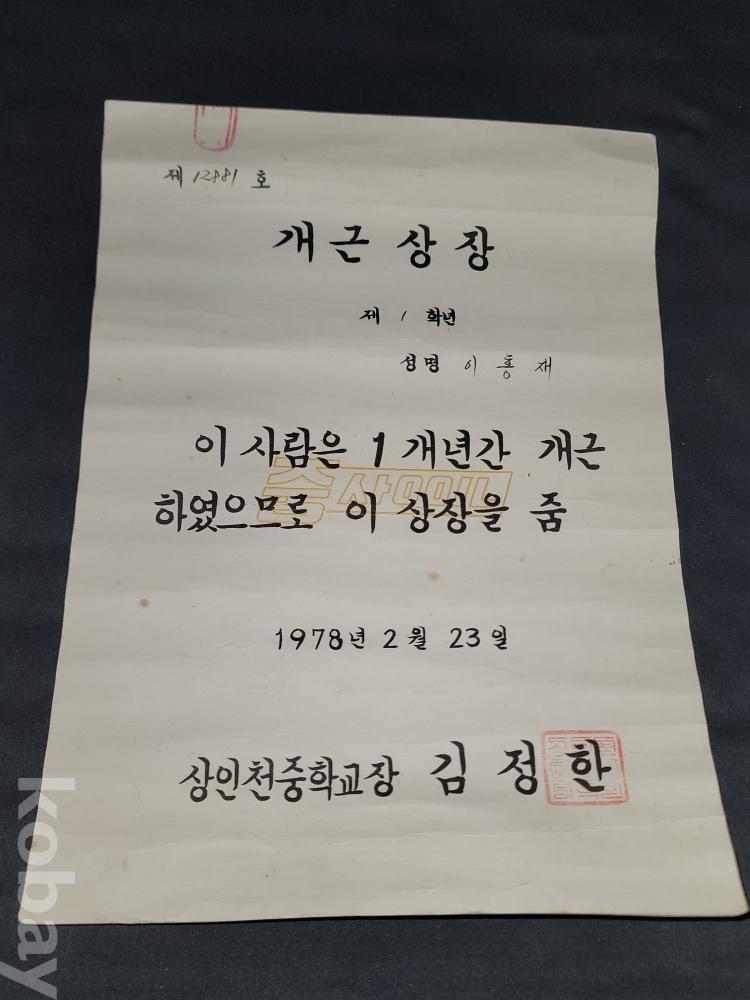 제 12881 호
개근 상장
제 1 학년
성명 이 홍 재
이 사람은 1 개년간 개근
하였으므로 이 상장을 줌
1978년 2월 23일
상인천중학교장 김 정 한
kobay